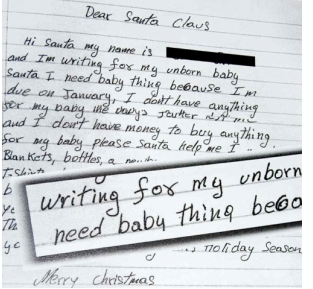 Dear Santa Claus
Hi Santa my name is
and I'm writing for my unborn baby
Santa I need baby thing because I'm
due on January, I don't have anything
for my baby the baby's father
and I don't have money to buy anything
for my baby please Santa help me I
Blankets, bottles, a
T-shirts
writing for my unborn
need baby thing beca
Holiday Season
Merry Christmas